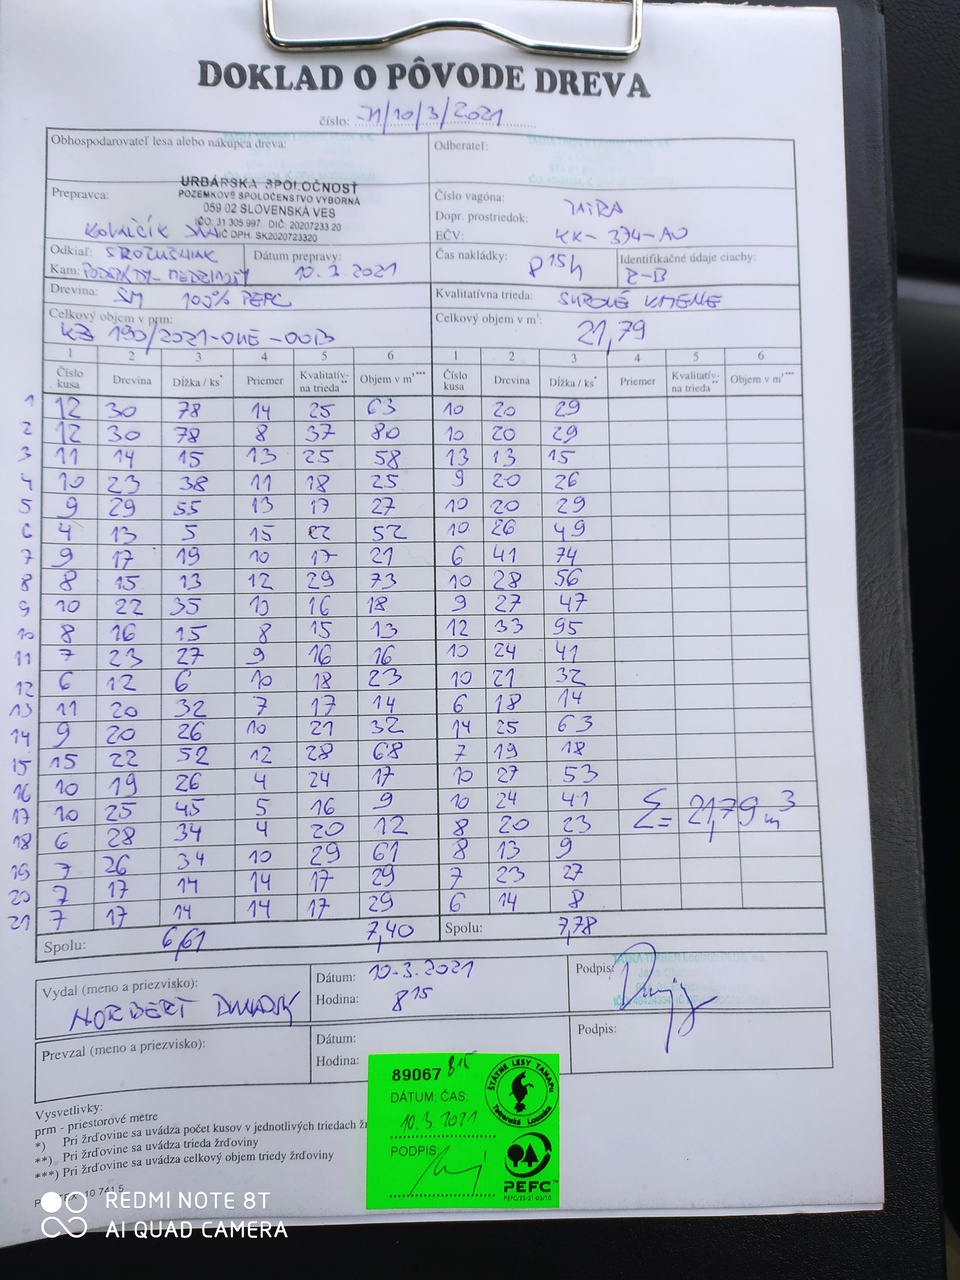 DOKLAD O PÔVODE DREVA
číslo: 71/10/3/2021
Obhospodarovateľ lesa alebo nákupca dreva:
Odberateľ:
URBÁRSKA SPOLOČNOSŤ
POZEMKOVÉ SPOLOČENSTVO VÝBORNÁ
059 02 SLOVENSKÁ VES
IČO: 31 305 997, DIČ: 20207233 20
IČ DPH. SK2020723320
Prepravca:
Číslo vagóna:
Dopr. prostriedok: TATRA
EČV: KK-374-AU
Odkiaľ:
Kam:
Dátum prepravy: 10.3 2021
Čas nakládky: 8 15 h
Identifikačné údaje ciachy:
Drevina: SM 100% PEFC
Kvalitatívna trieda: SUROVÉ KMENE
Celkový objem v prm:
Celkový objem v m³: 21,79
1 2 3 4 5 6 1 2 3 4 5 6
Číslo kusa Drevina Dĺžka / ks* Priemer Kvalitatív-na trieda** Objem v m³*** Číslo kusa Drevina Dĺžka / ks* Priemer Kvalitatív-na trieda** Objem v m³***
1 12 30 78 14 25 63 10 20 29
2 12 30 78 8 37 80 10 20 29
3 11 14 15 13 25 58 13 13 15
4 10 23 38 11 18 25 9 20 26
5 9 29 55 13 17 27 10 20 29
6 4 13 5 15 22 52 10 26 49
7 9 17 19 10 17 21 6 41 74
8 8 15 13 12 29 73 10 28 56
9 10 22 35 10 16 18 9 27 47
10 8 16 15 8 15 13 12 33 95
11 7 23 27 9 16 16 10 24 41
12 6 12 6 10 18 23 10 21 32
13 11 20 32 7 17 14 6 18 14
14 9 20 26 10 21 32 14 25 63
15 15 22 52 12 28 68 7 19 18
16 10 19 26 4 24 17 10 27 53
17 10 25 45 5 16 9 10 24 41 Σ= 21,79 m³
18 6 28 34 4 20 12 8 20 23
19 7 26 34 10 29 61 8 13 9
20 7 17 14 14 17 29 7 23 27
21 7 17 14 14 17 29 6 14 8
Spolu: 6,61 7,40 Spolu: 7,78
Vydal (meno a priezvisko):
NORBERT
Dátum: 10.3.2021
Hodina: 8 15
Podpis:
Prevzal (meno a priezvisko):
Dátum:
Hodina:
Podpis:
89067 815
DÁTUM, ČAS:
10.3.2021
PODPIS
ŠTÁTNE LESY TANAPu
Tatranská Lomnica
PEFC™
Vysvetlivky:
prm - priestorové metre
*) Pri žrďovine sa uvádza počet kusov v jednotlivých triedach
**) Pri žrďovine sa uvádza trieda žrďoviny
***) Pri žrďovine sa uvádza celkový objem triedy žrďoviny
REDMI NOTE 8T
AI QUAD CAMERA